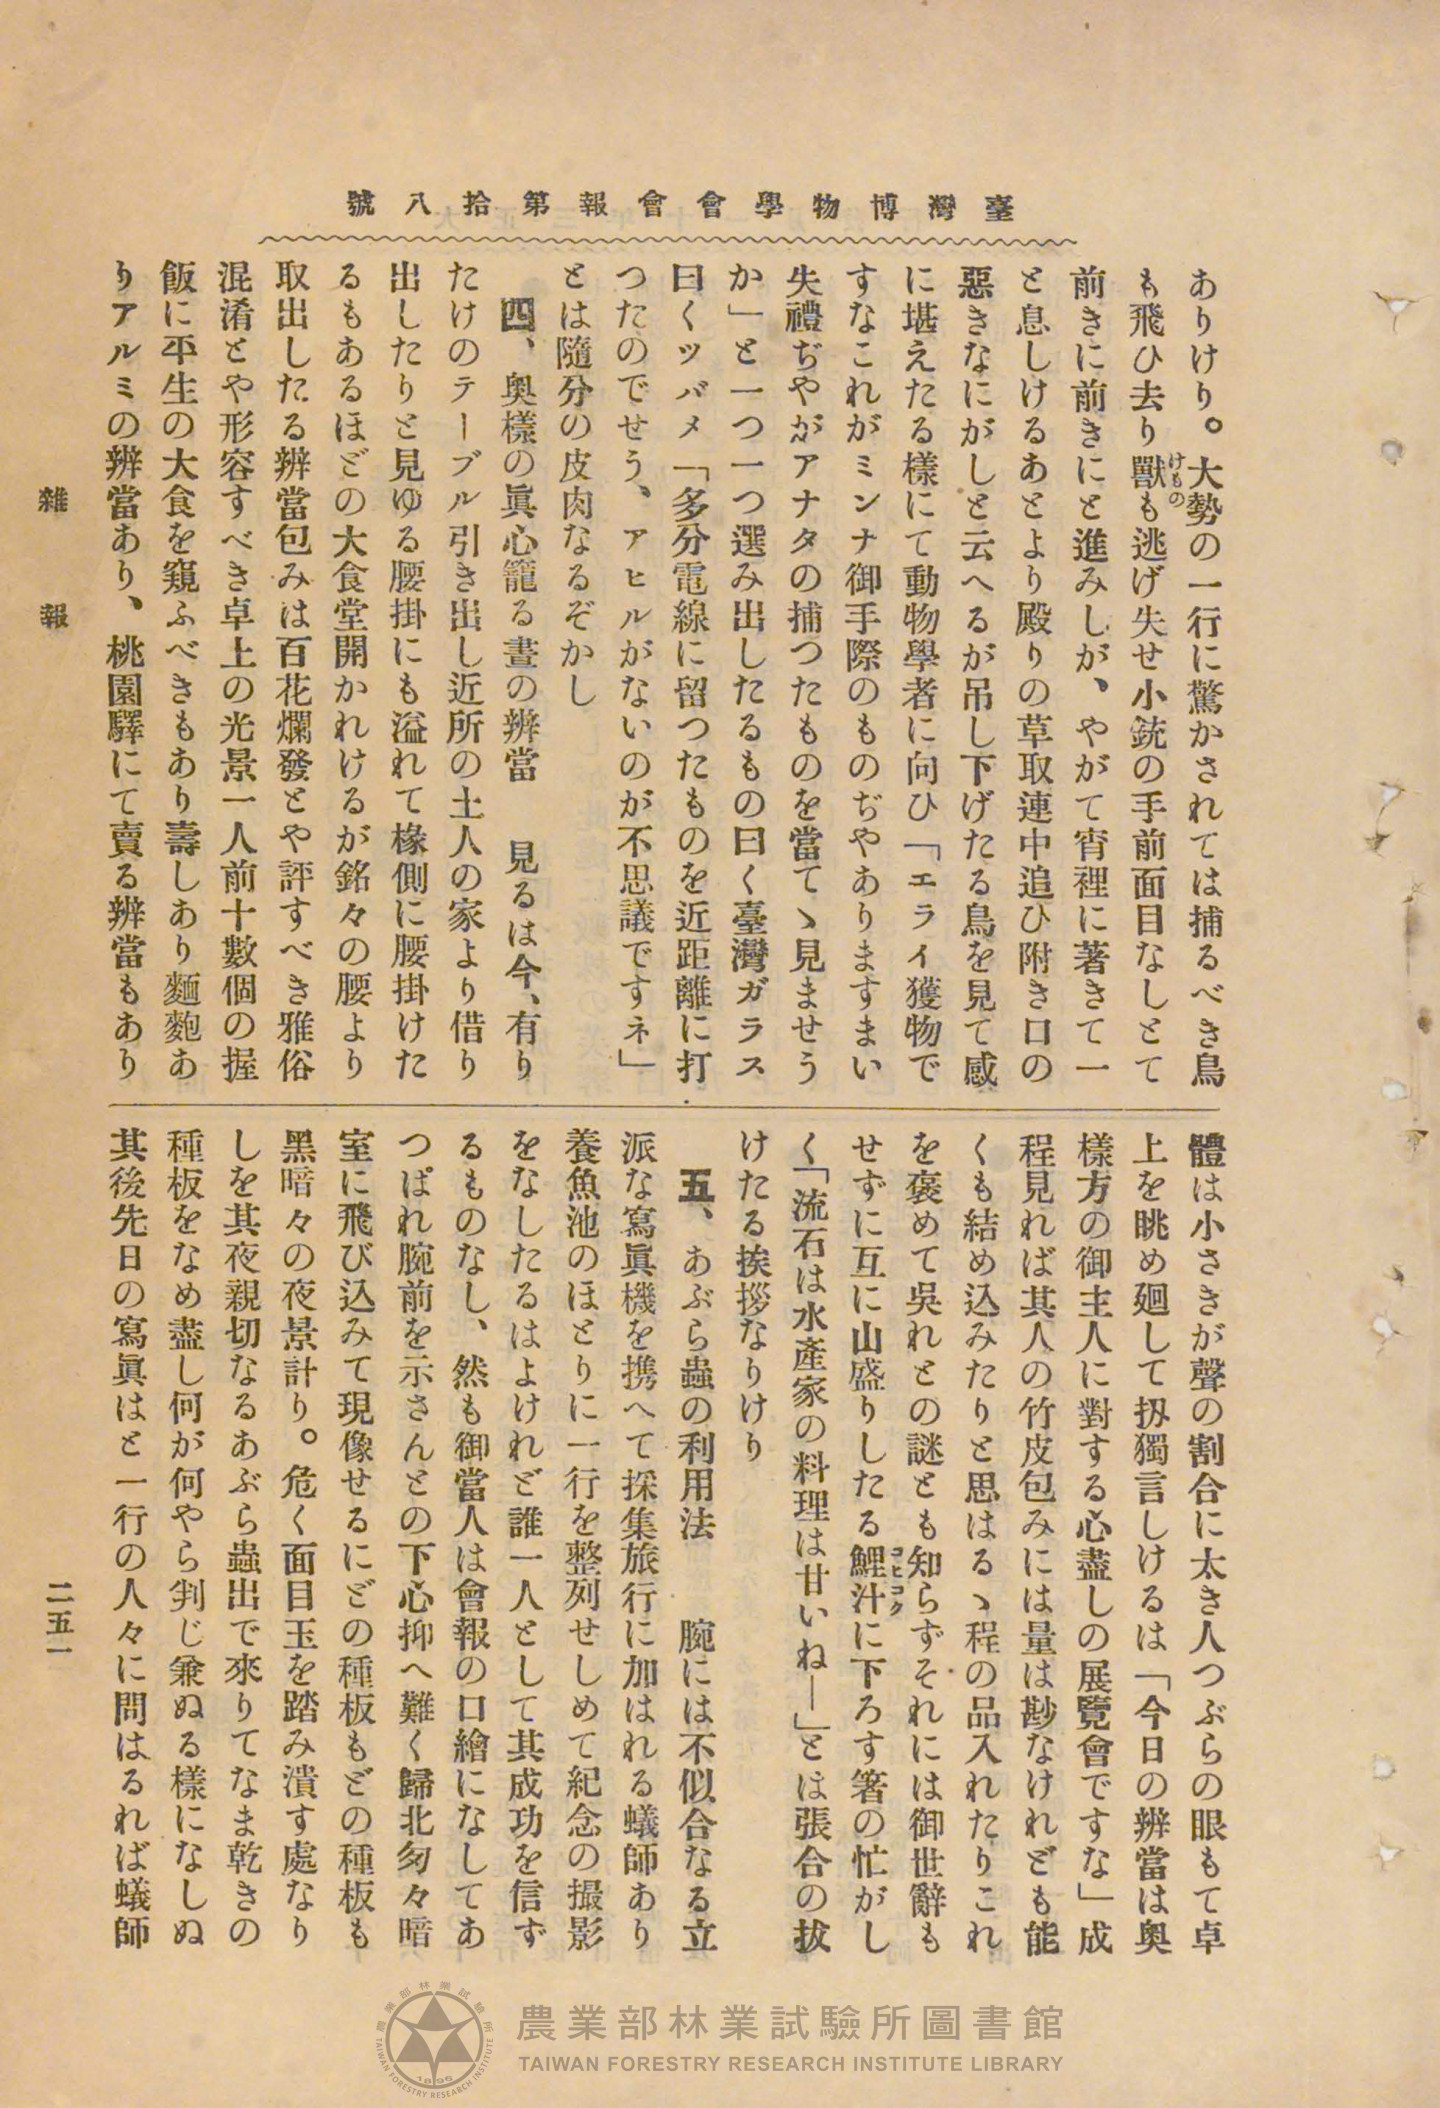 臺灣博物學會會報第拾八號
ありけり。大勢の一行に驚かされては捕るべき鳥
も飛ひ去り獸も逃げ失せ小銃の手前面目なしとて
けもの
前きに前きにと進みしが、やがて宵裡に著きて一
と息しけるあとより殿りの草取連中追ひ附き口の
惡きなにがしと云へるが吊し下げたる鳥を見て感
に堪えたる樣にて動物學者に向ひ「エライ獲物で
すなこれがミンナ御手際のものぢやありますまい
失禮ぢやがアナタの捕つたものを當てゝ見ませう
か」と一つ一つ選み出したるもの曰く臺灣ガラス
曰くツバメ「多分電線に留つたものを近距離に打
つたのでせう、アヒルがないのが不思議ですネ」
とは隨分の皮肉なるぞかし
四、奥樣の眞心籠る晝の辨當　見るは今、有り
たけのテーブル引き出し近所の土人の家より借り
出したりと見ゆる腰掛にも溢れて椽側に腰掛けた
るもあるほどの大食堂開かれけるが銘々の腰より
取出したる辨當包みは百花爛發とや評すべき雅俗
混淆とや形容すべき卓上の光景一人前十數個の握
飯に平生の大食を窺ふべきもあり壽しあり麵麭あ
りアルミの辨當あり、桃園驛にて賣る辨當もあり
體は小さきが聲の割合に太き人つぶらの眼もて卓
上を眺め廻して扨獨言しけるは「今日の辨當は奥
樣方の御主人に對する心盡しの展覽會ですな」成
程見れば其人の竹皮包みには量は尠なけれども能
くも結め込みたりと思はるゝ程の品入れたりこれ
を褒めて吳れとの謎とも知らずそれには御世辭も
せずに互に山盛りしたる鯉汁に下ろす箸の忙がし
コヒコク
く「流石は水產家の料理は甘いねー」とは張合の拔
けたる挨拶なりけり
五、あぶら蟲の利用法　腕には不似合なる立
派な寫眞機を携へて採集旅行に加はれる蟻師あり
養魚池のほとりに一行を整列せしめて紀念の撮影
をなしたるはよけれど誰一人として其成功を信ず
るものなし、然も御當人は會報の口繪になしてあ
つぱれ腕前を示さんとの下心抑へ難く歸北匆々暗
室に飛び込みて現像せるにどの種板もどの種板も
黑暗々の夜景計り。危く面目玉を踏み潰す處なり
しを其夜親切なるあぶら蟲出で來りてなま乾きの
種板をなめ盡し何が何やら判じ兼ぬる樣になしぬ
其後先日の寫眞はと一行の人々に問はるれば蟻師
雜報
二五一
農業部林業試驗所圖書館
TAIWAN FORESTRY RESEARCH INSTITUTE LIBRARY
農業部林業試驗所
TAIWAN FORESTRY RESEARCH INSTITUTE
1896